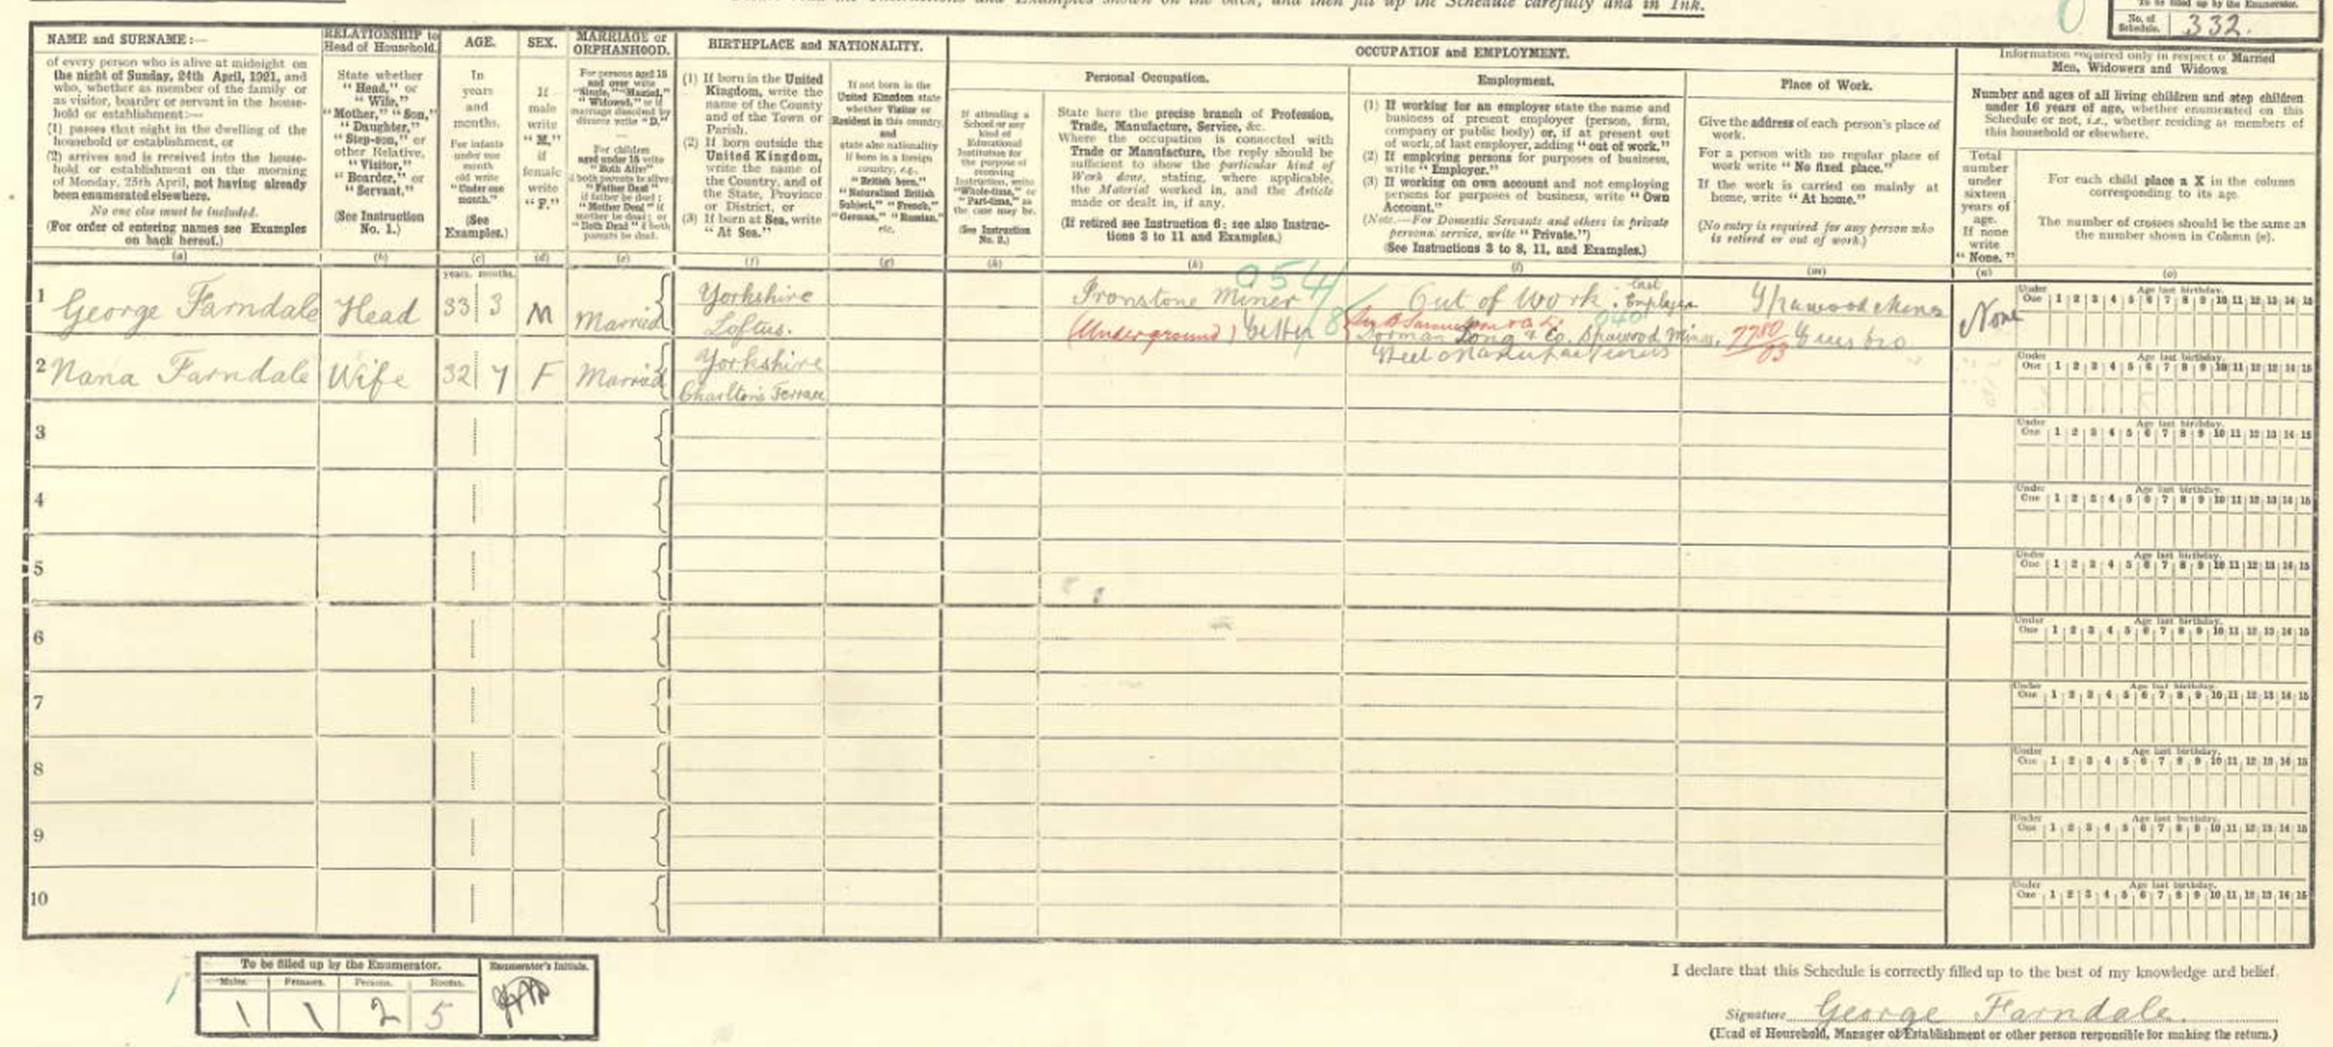 in Ink.
To be filled up by the Enumerator.
No. of Schedule. 332.
NAME and SURNAME:—
of every person who is alive at midnight on
the night of Sunday, 24th April, 1921, and
who, whether as member of the family or
as visitor, boarder or servant in the house-
hold or establishment:—
(1) passes that night in the dwelling of the
household or establishment, or
(2) arrives and is received into the house-
hold or establishment on the morning
of Monday, 25th April, not having already
been enumerated elsewhere.
No one else must be included.
(For order of entering names see Examples
on back hereof.)
(a)
RELATIONSHIP to
Head of Household.
State whether
"Head," or
"Wife,"
"Mother," "Son,"
"Daughter,"
"Step-son," or
other Relative,
"Visitor,"
"Boarder," or
"Servant."
(See Instruction
No. 1.)
(b)
AGE.
In
years
and
months.
For infants
under one
month
old write
"Under one
month."
(See
Examples.)
(c)
SEX.
If
male
write
"M,"
if
female
write
"F."
(d)
MARRIAGE or
ORPHANHOOD.
For persons aged 15
and over write
"Single," "Married,"
"Widowed," or if
marriage dissolved by
divorce write "D."
For children
aged under 15 write
"Both Alive"
if both parents be alive
"Father Dead"
if father be dead;
"Mother Dead" if
mother be dead; or
"Both Dead" if both
parents be dead.
(e)
BIRTHPLACE and NATIONALITY.
(1) If born in the United
Kingdom, write the
name of the County
and of the Town or
Parish.
(2) If born outside the
United Kingdom,
write the name of
the Country, and of
the State, Province
or District, or
(3) If born at Sea, write
"At Sea."
(f)
If not born in the
United Kingdom state
whether Visitor or
Resident in this country,
and
state also nationality
if born in a foreign
country, e.g.,
"British born,"
"Naturalised British
Subject," "French,"
"German," "Russian,"
etc.
(g)
OCCUPATION and EMPLOYMENT.
If attending a
School or any
kind of
Educational
Institution for
the purpose of
receiving
Instruction, write
"Whole-time," or
"Part-time," as
the case may be.
(See Instruction
No. 2.)
(h)
Personal Occupation.
State here the precise branch of Profession,
Trade, Manufacture, Service, &c.
Where the occupation is connected with
Trade or Manufacture, the reply should be
sufficient to show the particular kind of
Work done, stating, where applicable,
the Material worked in, and the Article
made or dealt in, if any.
(If retired see Instruction 6; see also Instruc-
tions 3 to 11 and Examples.)
(k)
Employment.
(1) If working for an employer state the name and
business of present employer (person, firm,
company or public body) or, if at present out
of work, of last employer, adding "out of work."
(2) If employing persons for purposes of business,
write "Employer."
(3) If working on own account and not employing
persons for purposes of business, write "Own
Account."
(Note.—For Domestic Servants and others in private
personal service, write "Private.")
(See Instructions 3 to 8, 11, and Examples.)
(l)
Place of Work.
Give the address of each person's place of
work.
For a person with no regular place of
work write "No fixed place."
If the work is carried on mainly at
home, write "At home."
(No entry is required for any person who
is retired or out of work.)
(m)
Information required only in respect of Married
Men, Widowers and Widows.
Number and ages of all living children and step children
under 16 years of age, whether enumerated on this
Schedule or not, i.e., whether residing as members of
this household or elsewhere.
Total
number
under
sixteen
years of
age.
If none
write
"None."
(n)
For each child place a X in the column
corresponding to its age.
The number of crosses should be the same as
the number shown in Column (n).
(o)
years. months.
1 George Farndale Head 33 3 M Married Yorkshire Loftus.
Ironstone Miner 054/8
(Underground)
Out of Work. Last Employer
Dorman Long & Co, Spawood Mines,
Steel Manufacturers
040
Spawood Mines
7780/03 Guisbro
None
Under One 1 2 3 4 5 6 7 8 9 10 11 12 13 14 15
Age last birthday.
2 Nana Farndale Wife 32 7 F Married Yorkshire Charlton's Terrace
Under One 1 2 3 4 5 6 7 8 9 10 11 12 13 14 15
Age last birthday.
3
Under One 1 2 3 4 5 6 7 8 9 10 11 12 13 14 15
Age last birthday.
4
Under One 1 2 3 4 5 6 7 8 9 10 11 12 13 14 15
Age last birthday.
5
Under One 1 2 3 4 5 6 7 8 9 10 11 12 13 14 15
Age last birthday.
6
Under One 1 2 3 4 5 6 7 8 9 10 11 12 13 14 15
Age last birthday.
7
Under One 1 2 3 4 5 6 7 8 9 10 11 12 13 14 15
Age last birthday.
8
Under One 1 2 3 4 5 6 7 8 9 10 11 12 13 14 15
Age last birthday.
9
Under One 1 2 3 4 5 6 7 8 9 10 11 12 13 14 15
Age last birthday.
10
Under One 1 2 3 4 5 6 7 8 9 10 11 12 13 14 15
Age last birthday.
To be filled up by the Enumerator.
Males. Females. Persons. Rooms.
1 1 2 5
Enumerator's Initials.
I declare that this Schedule is correctly filled up to the best of my knowledge and belief.
Signature George Farndale.
(Head of Household, Manager of Establishment or other person responsible for making the return.)